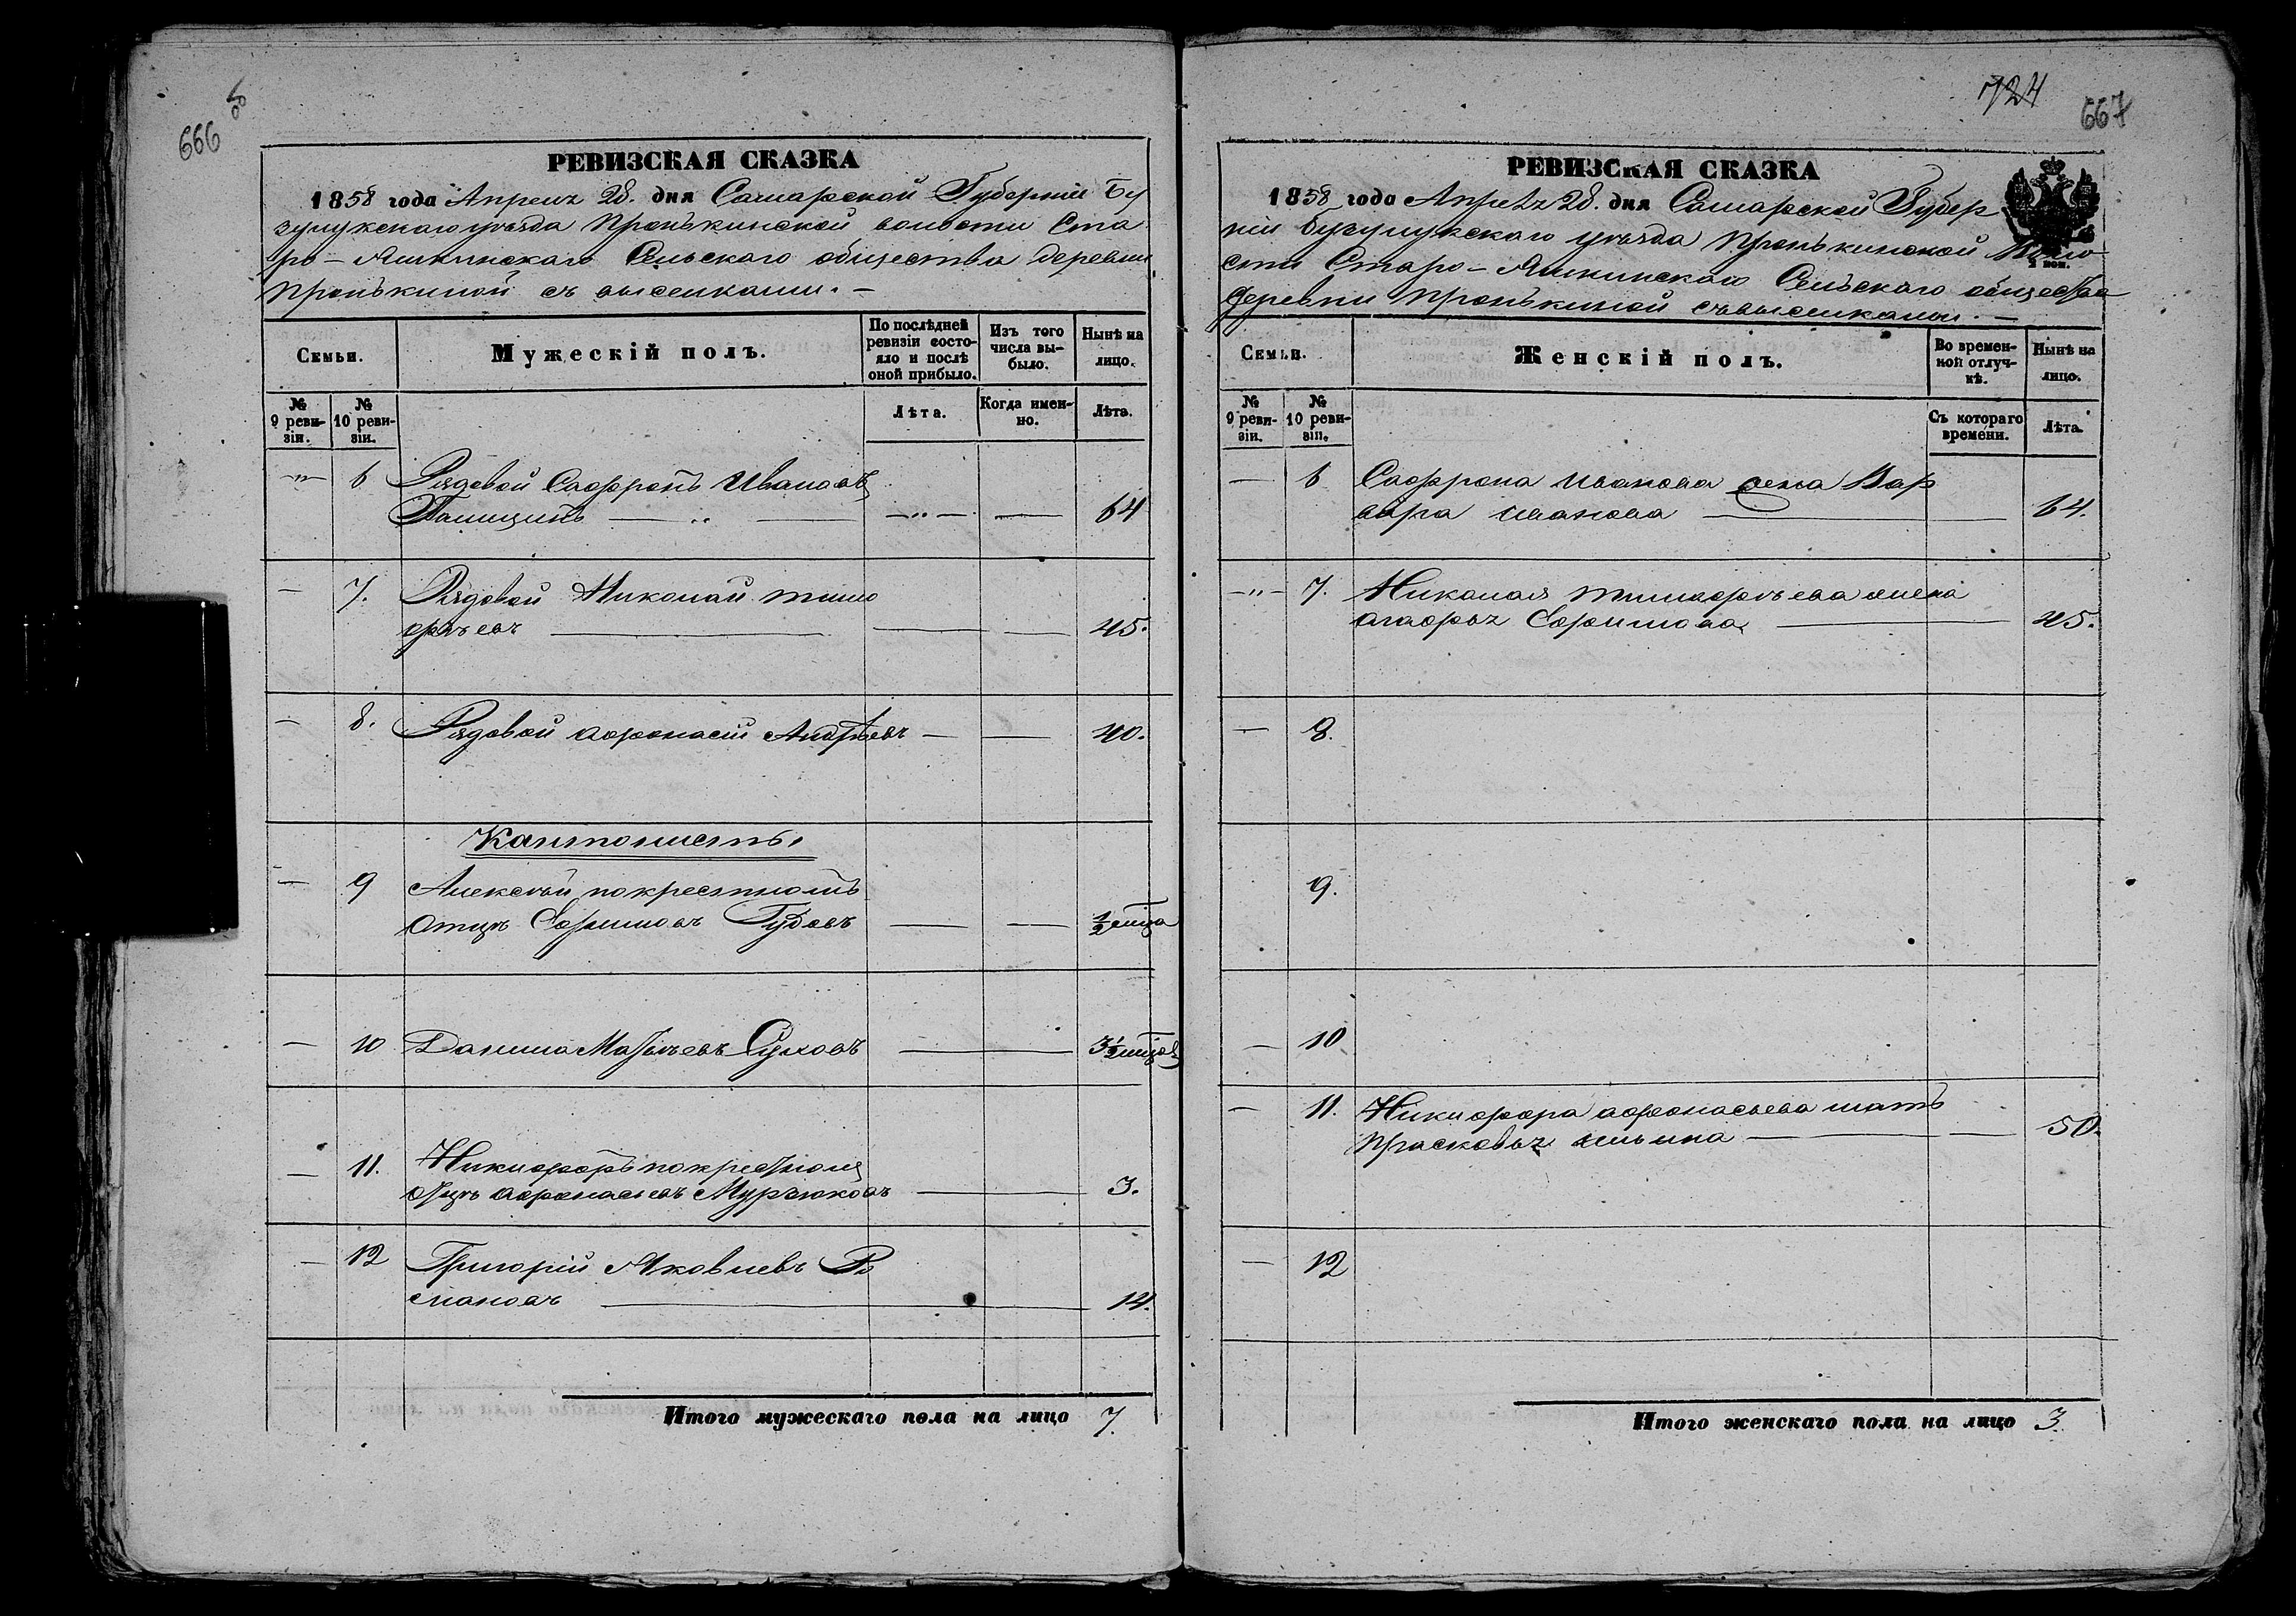 666
РЕВИЗСКАЯ СКАЗКА
1858 года Апреля 28. дня Самарской Губерніи Бу
зулукскаго уѣзда Пронькинской волости Ста
ро-Ашкинскаго Сельскаго общества деревни
Пронькиной съ выселками.
Семьи.
Мужескій полъ.
По послѣдней ревизіи состояло и послѣ оной прибыло.
Изъ того числа выбыло.
Нынѣ на лицо.
№ 9 ревизіи.
№ 10 ревизіи.
Лѣта.
Когда именно.
Лѣта.
6 Рядовой Сафронъ Ивановъ
64
7. Рядовой Николай Тимо
фѣевъ 45.
8. Рядовой Афонасій Андрѣевъ 40.
Кантонисты
9 Алексѣй по крестномъ
отцѣ Ефимовъ Гудовъ ½ мца
10 Данила Матвѣевъ Суховъ 3½ мцов
11. Никифоръ по крестном
отцѣ Афонасьевъ 3.
12 Григорій Яковлевъ Ро
мановъ 14.
Итого мужескаго пола на лицо 7.
724
667
РЕВИЗСКАЯ СКАЗКА
1858 года Апреля 28. дня Самарской Губер
ніи Бузулукскаго уѣзда Пронькинской Воло
сти Старо-Ашкинскаго Сельскаго общества
деревни Пронькиной съ выселками.
Семьи.
Женскій полъ.
Во временной отлучкѣ.
Нынѣ на лицо.
№ 9 ревизіи.
№ 10 ревизіи.
Съ котораго времени.
Лѣта.
6 Сафрона Иванова жена Вар
вара Иванова 64.
7. Николая Тимофѣева жена
Агафья Ефимова 45.
8.
9.
10
11. Никифора Афонасьева мать
Прасковья Ильина 50.
12
Итого женскаго пола на лицо 3.